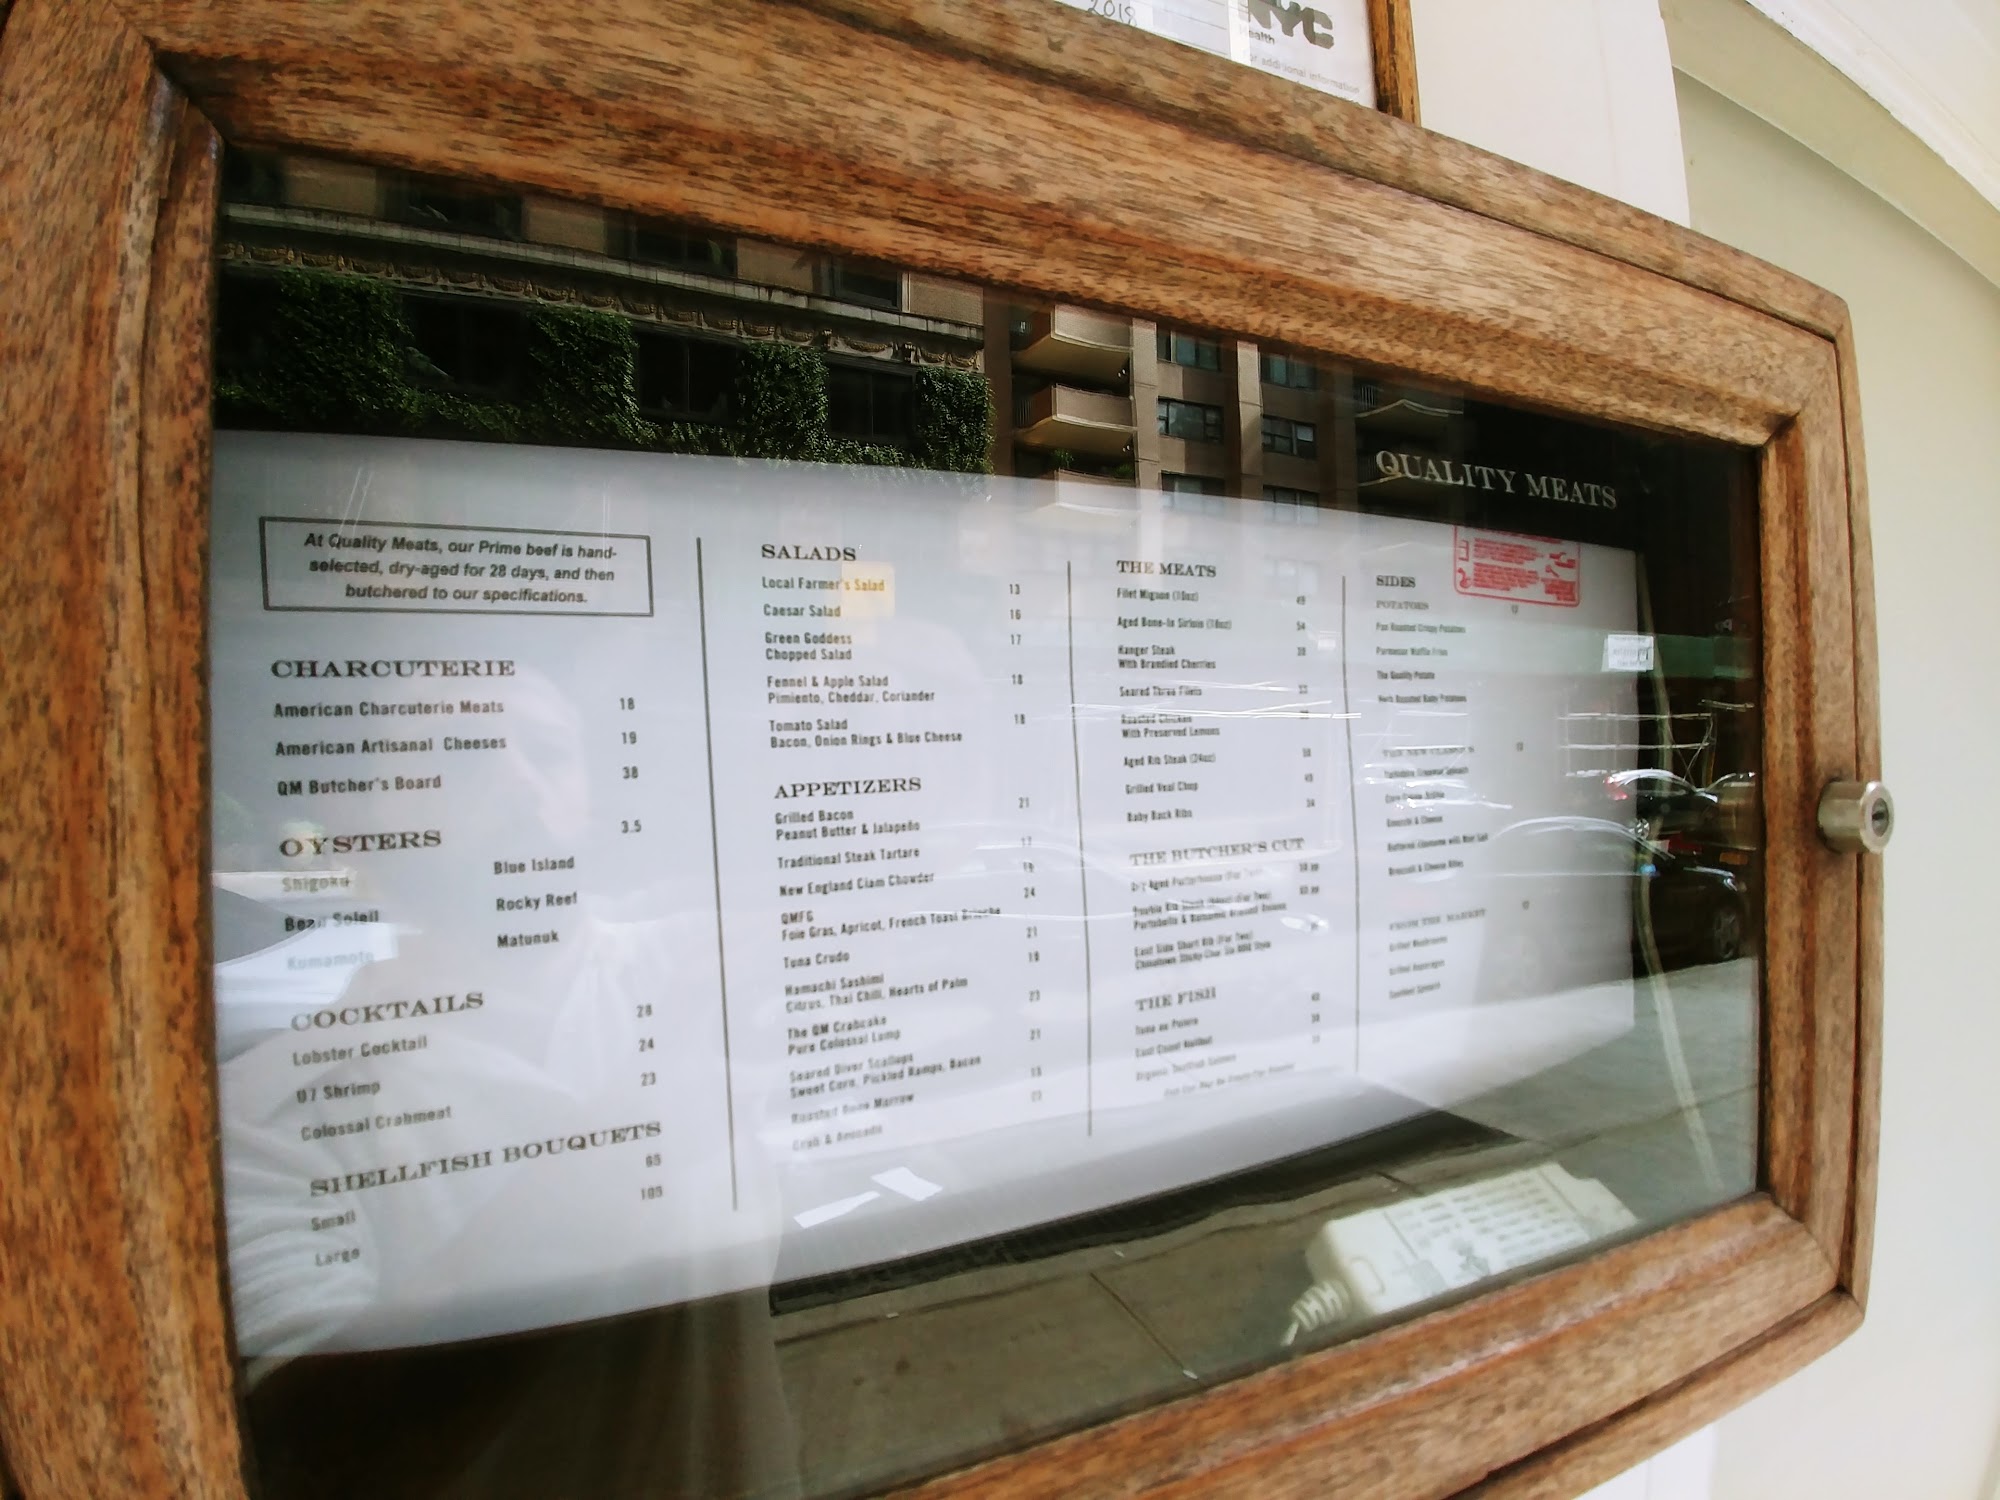 2018
NYC
Health
for additional information
QUALITY MEATS
At Quality Meats, our Prime beef is hand-
selected, dry-aged for 28 days, and then
butchered to our specifications.
CHARCUTERIE
American Charcuterie Meats 18
American Artisanal Cheeses 19
QM Butcher's Board 38
OYSTERS 3.5
Shigoku Blue Island
Beau Soleil Rocky Reef
Kumamoto Matunuk
COCKTAILS
Lobster Cocktail 28
U7 Shrimp 24
Colossal Crabmeat 23
SHELLFISH BOUQUETS
Small 65
Large 105
SALADS
Local Farmer's Salad 13
Caesar Salad 16
Green Goddess 17
Chopped Salad
Fennel & Apple Salad 18
Pimiento, Cheddar, Coriander
Tomato Salad 18
Bacon, Onion Rings & Blue Cheese
APPETIZERS
Grilled Bacon 21
Peanut Butter & Jalapeño
Traditional Steak Tartare 17
New England Clam Chowder 19
QMFG 24
Foie Gras, Apricot, French Toast Brioche
Tuna Crudo 21
Hamachi Sashimi 19
Citrus, Thai Chili, Hearts of Palm
The QM Crabcake 23
Pure Colossal Lump
Seared Diver Scallops 21
Sweet Corn, Pickled Ramps, Bacon
Roasted Bone Marrow 18
Crab & Avocado 23
THE MEATS
Filet Mignon (10oz) 49
Aged Bone-In Sirloin (18oz) 54
Hanger Steak 39
With Brandied Cherries
Seared Three Filets
Roasted Chicken
With Preserved Lemons
Aged Rib Steak (24oz)
Grilled Veal Chop 49
Baby Back Ribs 34
THE BUTCHER'S CUT
Dry Aged Porterhouse (For Two)
Double Rib Steak (For Two)
Portobello & Balsamic Braised Onions
East Side Short Rib (For Two)
Chinatown Sticky Glue Six BBQ Style
THE FISH
Tuna au Poivre
East Coast Halibut
Organic Salmon
SIDES
POTATOES
Pan Roasted Crispy Potatoes
Parmesan Waffle Fries
The Quality Potato
Herb Roasted Baby Potatoes
THE NEW CLASSICS
Corn Crème Brûlée
Gnocchi & Cheese
Broccoli & Cheese Bites
FROM THE MARKET
Grilled Mushrooms
Grilled Asparagus
Sautéed Spinach